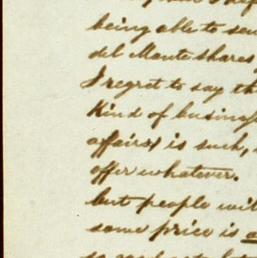 being able to sen
del Monte shares
I regret to say th
Kind of business
affairs is such,
offer whatever.
but people wil
some price is a